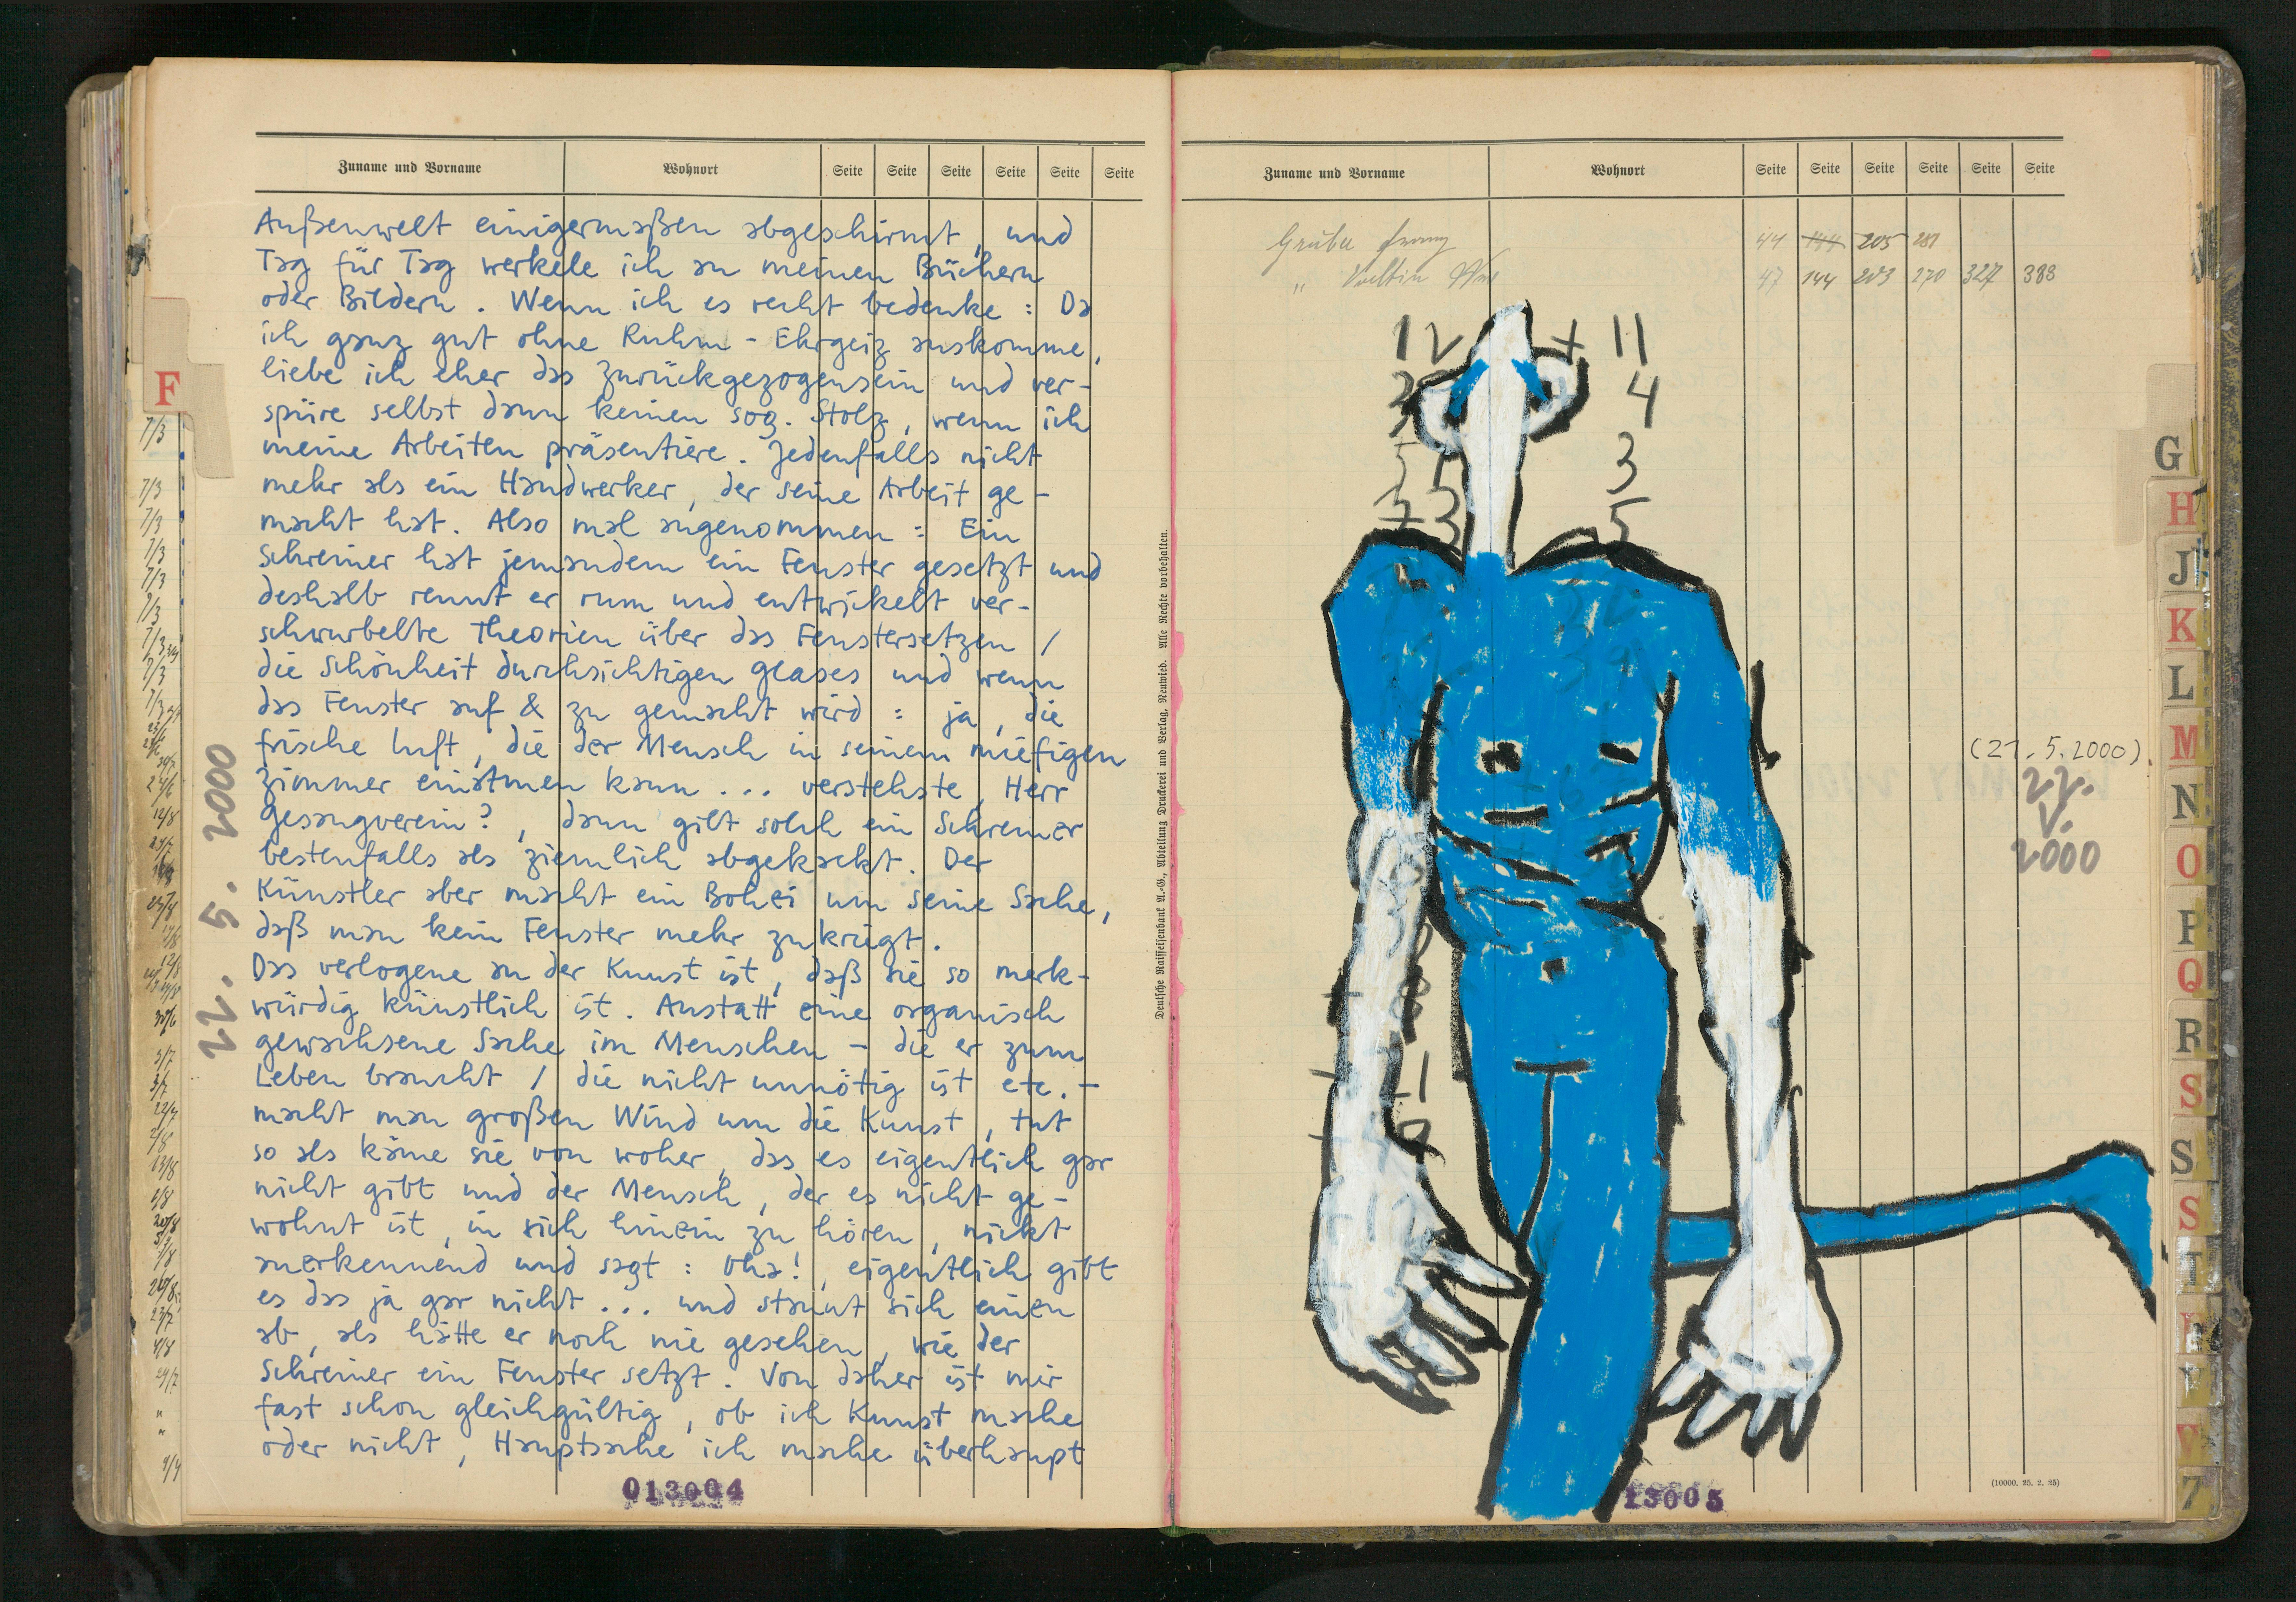 Zuname und Vorname Wohnort Seite Seite Seite Seite Seite Seite
Außenwelt einigermaßen abgeschirmt, und
Tag für Tag werkele ich an meinen Büchern
oder Bildern. Wenn ich es recht bedenke: Da
ich ganz gut ohne Ruhm-Ehrgeiz auskomme,
liebe ich eher das Zurückgezogensein und ver-
spüre selbst dann keinen sog. Stolz, wenn ich
meine Arbeiten präsentiere. Jedenfalls nicht
mehr als ein Handwerker, der seine Arbeit ge-
macht hat. Also mal angenommen: Ein
Schreiner hat jemandem ein Fenster gesetzt und
deshalb rennt er rum und entwickelt ver-
schwurbelte Theorien über das Fenstersetzen /
die Schönheit durchsichtigen Glases und wenn
das Fenster auf & zu gemacht wird: ja, die
frische Luft, die der Mensch in seinem miefigen
Zimmer einatmen kann ... verstehste, Herr
Gesangverein?, dann gilt solch ein Schreiner
bestenfalls als ziemlich abgekackt. Der
Künstler aber macht ein Bohei um seine Sache,
daß man kein Fenster mehr zukriegt.
Das verlogene an der Kunst ist, daß sie so merk-
würdig künstlich ist. Anstatt eine organisch
gewachsene Sache im Menschen – die er zum
Leben braucht / die nicht unnötig ist etc. –
macht man großen Wind um die Kunst, tut
so als käme sie von woher, das es eigentlich gar
nicht gibt und der Mensch, der es nicht ge-
wohnt ist, in sich hinein zu hören, nickt
anerkennend und sagt: oha!, eigentlich gibt
es das ja gar nicht ... und staunt sich einen
ab, als hätte er noch nie gesehen, wie der
Schreiner ein Fenster setzt. Von daher ist mir
fast schon gleichgültig, ob ich Kunst mache
oder nicht, Hauptsache ich mache überhaupt
013004
22. 5. 2000
F
Deutsche Raiffeisenbank A.-G., Abteilung Druckerei und Verlag, Neuwied. Alle Rechte vorbehalten.
Zuname und Vorname Wohnort Seite Seite Seite Seite Seite Seite
44 144 205 281
47 144 203 270 327 388
12 + 11
4
3
5
(21. 5. 2000)
22.
V.
2000
(10000. 25. 2. 25)
13005
G
H
J
K
L
M
N
O
P
Q
R
S
S
S